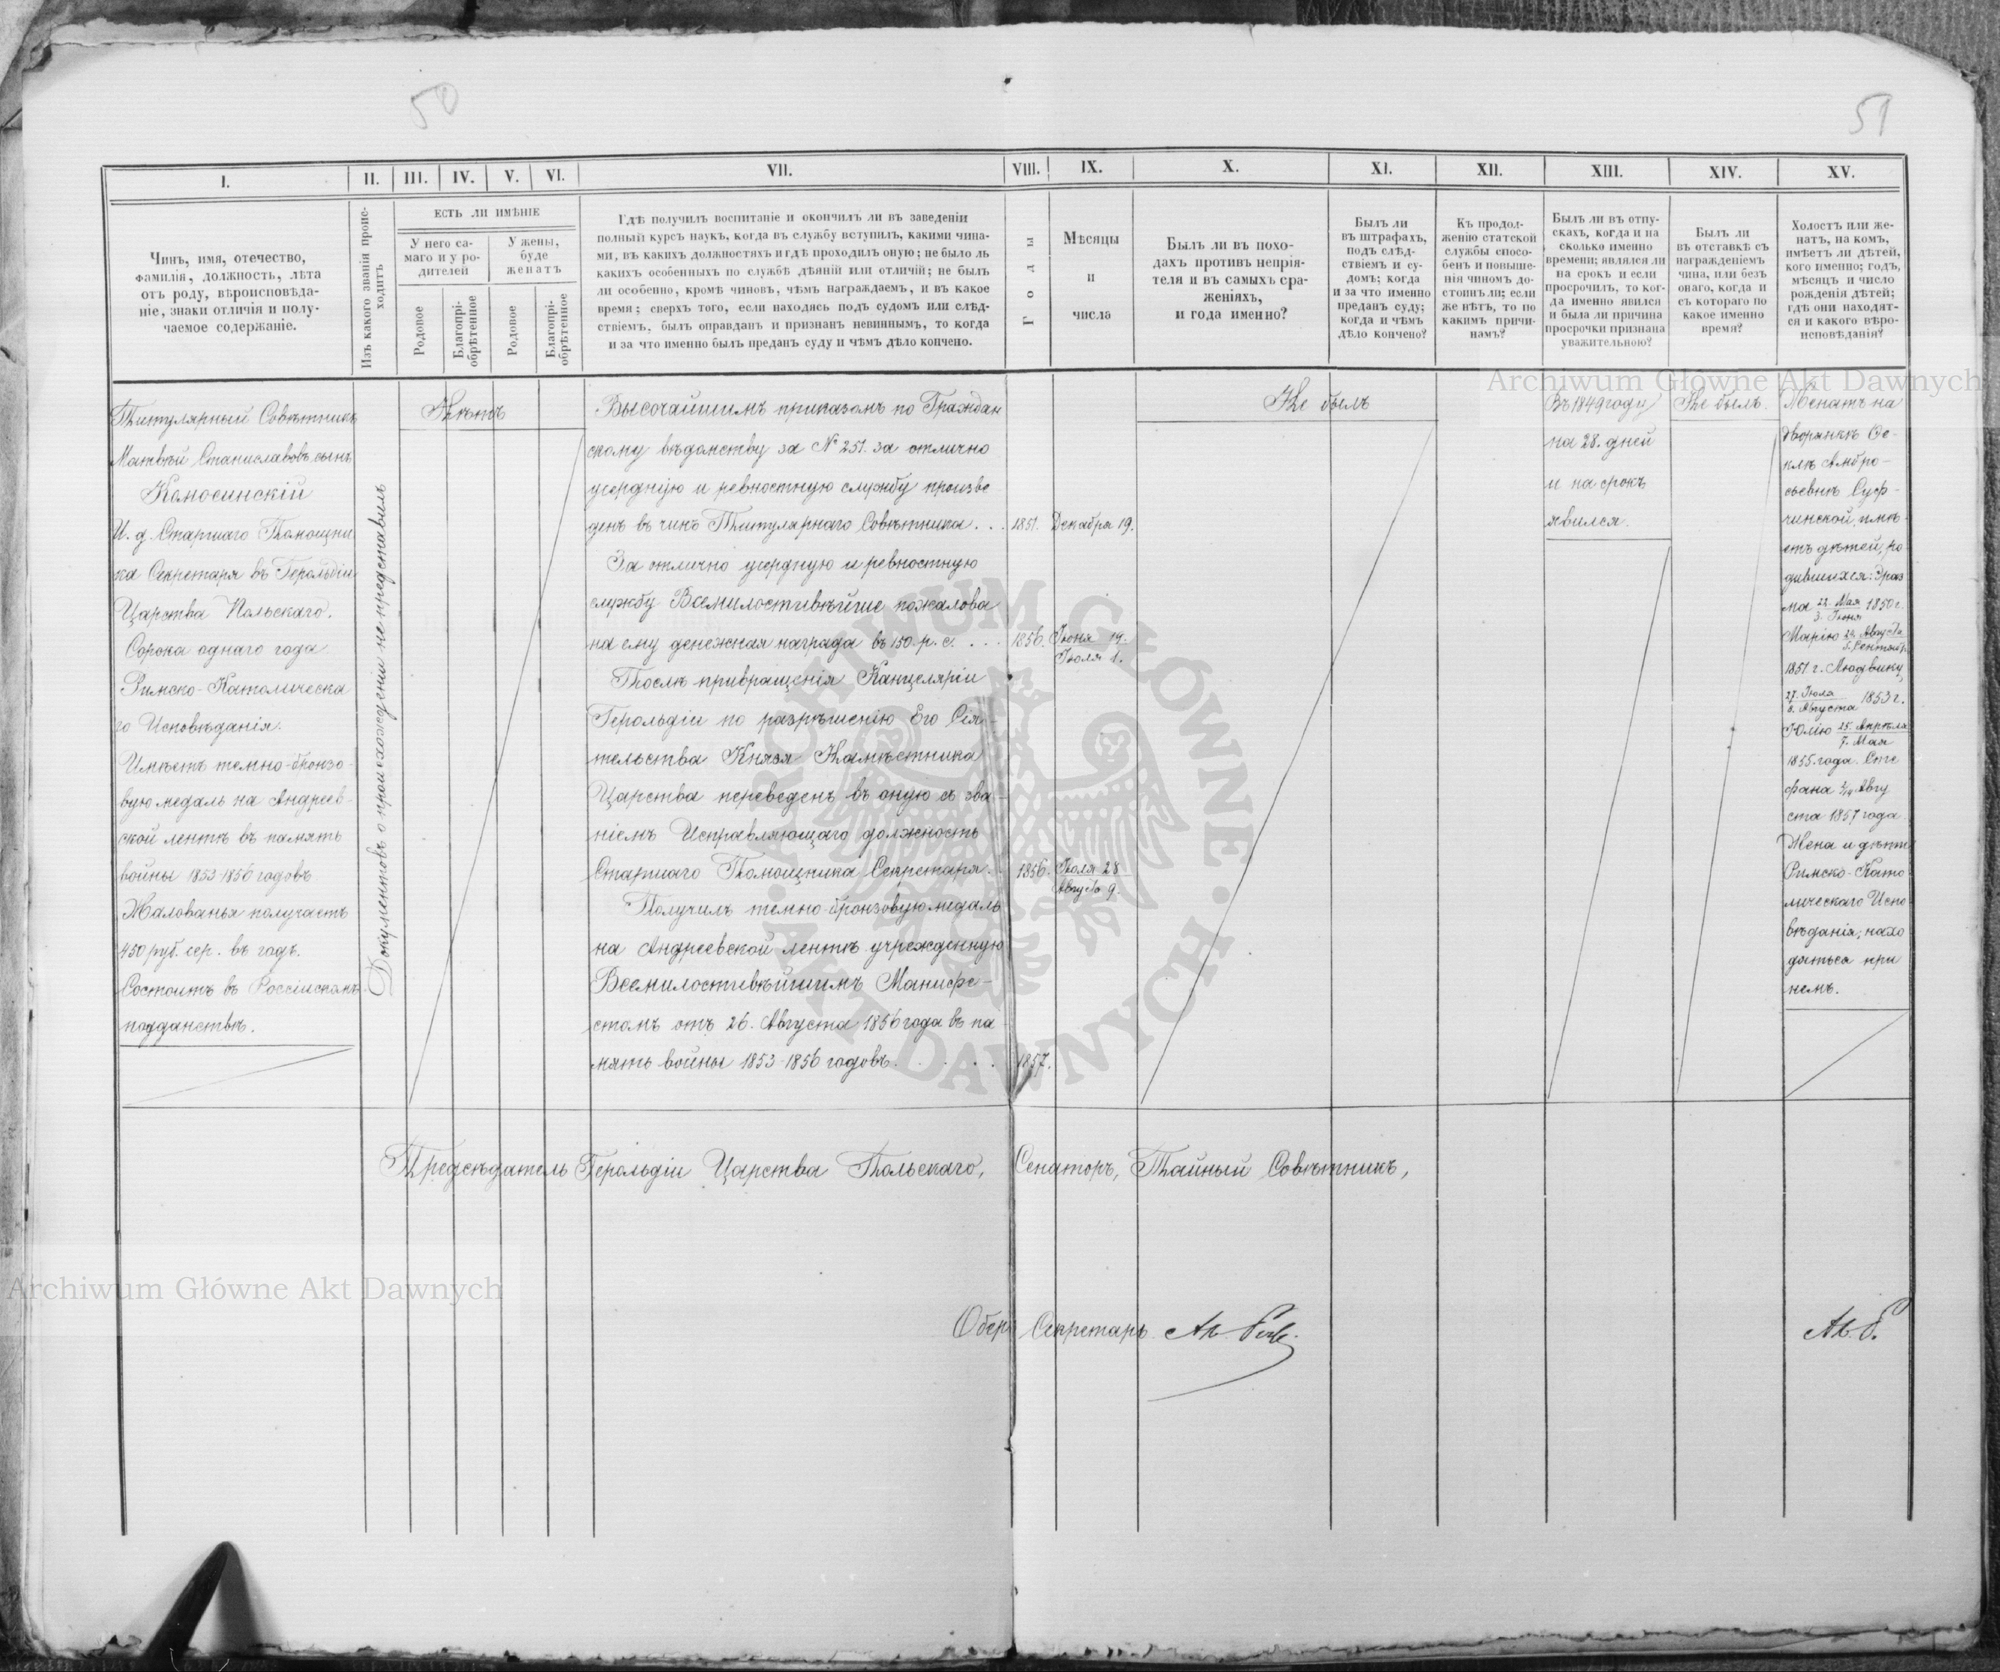 50
51
I.
II.
III.
IV.
V.
VI.
VII.
VIII.
IX.
X.
XI.
XII.
XIII.
XIV.
XV.
Чинъ, имя, отечество,
фамилія, должность, лѣта
отъ роду, вѣроисповѣда-
ніе, знаки отличія и полу-
чаемое содержаніе.
Изъ какого званія проис-
ходитъ.
ЕСТЬ ЛИ ИМѢНІЕ
У него са-
маго и у ро-
дителей
У жены,
буде
женатъ
Родовое
Благопрі-
обрѣтенное
Родовое
Благопрі-
обрѣтенное
Гдѣ получилъ воспитаніе и окончилъ ли въ заведеніи
полный курсъ наукъ, когда въ службу вступилъ, какими чина-
ми, въ какихъ должностяхъ и гдѣ проходилъ оную; не было ль
какихъ особенныхъ по службѣ дѣяній или отличій; не былъ
ли особенно, кромѣ чиновъ, чѣмъ награждаемъ, и въ какое
время; сверхъ того, если находясь подъ судомъ или слѣд-
ствіемъ, былъ оправданъ и признанъ невиннымъ, то когда
и за что именно былъ преданъ суду и чѣмъ дѣло кончено.
Годы
Мѣсяцы
и
числа
Былъ ли въ похо-
дахъ противъ непрія-
теля и въ самыхъ сра-
женіяхъ,
и года именно?
Былъ ли
въ штрафахъ,
подъ слѣд-
ствіемъ и су-
домъ; когда
и за что именно
преданъ суду;
когда и чѣмъ
дѣло кончено?
Къ продол-
женію статской
службы спосо-
бенъ и повыше-
нія чиномъ до-
стоинъ ли; если
же нѣтъ, то по
какимъ причи-
намъ?
Былъ ли въ отпу-
скахъ, когда и на
сколько именно
времени; являлся ли
на срокъ и если
просрочилъ, то ког-
да именно явился
и была ли причина
просрочки признана
уважительною?
Былъ ли
въ отставкѣ съ
награжденіемъ
чина, или безъ
онаго, когда и
съ котораго по
какое именно
время?
Холостъ или же-
натъ, на комъ,
имѣетъ ли дѣтей,
кого именно; годъ,
мѣсяцъ и число
рожденія дѣтей;
гдѣ они находят-
ся и какого вѣро-
исповѣданія?
Титулярный Совѣтникъ
Матвѣй Станиславовъ сынъ
Комосинскій
И. д. Старшаго Помощни
ка Секретаря въ Герольдіи
Царства Польскаго.
Сорока однаго года.
Римско-Католическа
го Исповѣданія.
Имѣетъ темно-бронзо-
вую медаль на Андреев-
ской лентѣ въ память
войны 1853-1856 годовъ
Жалованья получаетъ
450 руб. сер. въ годъ.
Состоитъ въ Россійскомъ
подданствѣ.
Документовъ о происхожденіи не представилъ
Нѣтъ
Высочайшимъ приказомъ по Граждан
скому вѣдомству за № 251. за отлично
усердную и ревностную службу произве
денъ въ чинъ Титулярнаго Совѣтника . . 1851. Декабря 19.
За отлично усердную и ревностную
службу Всемилостивѣйше пожалова
на ему денежная награда въ 150. р. с. . . . 1856. Іюня 19.
Іюля 1.
Послѣ превращенія Канцеляріи
Герольдіи по разрѣшенію Его Сія-
тельства Князя Намѣстника
Царства переведенъ въ оную съ зва-
ніемъ Исправляющаго должность
Старшаго Помощника Секретаря. . 1856. Іюля 28
Августа 9.
Получилъ темно-бронзовую медаль
на Андреевской лентѣ учрежденную
Всемилостивѣйшимъ Манифе-
стомъ отъ 26. Августа 1856 года въ па
мять войны 1853-1856 годовъ. . . . . . 1857.
Не былъ
Въ 1849 году
на 28. дней
и на срокъ
явился.
Не былъ.
Женатъ на
дворянкѣ Ое-
клѣ Амбро-
сьевнѣ Суф-
чинской, имѣ-
етъ дѣтей, ро
дившихся: Эраз
ма 22. Мая 1850 г.
3. Іюня
Марію 24. Августа
5. Сентяб.
1851 г. Людвику,
27. Іюля 1853 г.
8. Августа
Юлію 25. Апрѣля
7. Мая
1855. года. Сте
фана 2/14 Авгу
ста 1857 года
Жена и дѣти
Римско-Като
лическаго Испо
вѣданія, нахо
дятся при
немъ.
Предсѣдатель Герольдіи Царства Польскаго, Сенаторъ, Тайный Совѣтникъ,
Оберъ Секретарь
Archiwum Główne Akt Dawnych
Archiwum Główne Akt Dawnych
ARCHIWUM GŁÓWNE · AKT DAWNYCH ·